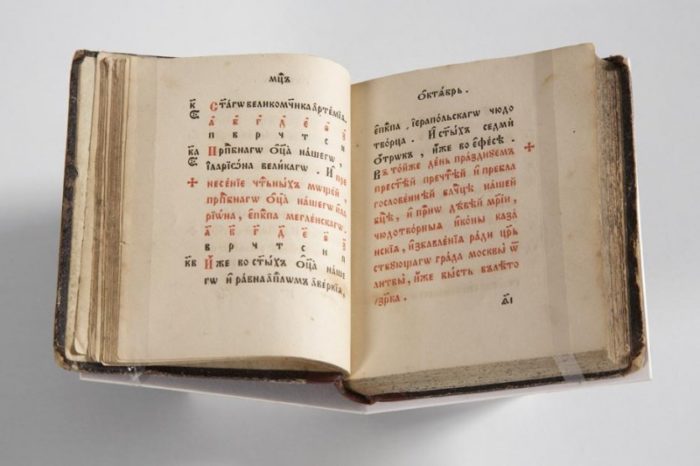 мцⷭ҇ъ
к҃ Ст҃а́гѡ великомч҃нка а҆рте́мїа
є҃ а҃ в҃ г҃ д҃ є҃ ѕ҃
п в р ч т с н
ка҃ Прпⷣбнагѡ ѻ҆ц҃а̀ на́шегѡ,
є҃ і҆ларїѡ́на вели́кагѡ. И҆ пре
✢ несе́нїе чтⷭ҇ныхъ моще́й
прпⷣбнагѡ ѻ҆ц҃а̀ на́шегѡ и҆ла
рїѡ́на, є҆пкⷭ҇па меглѐнскагѡ.
а҃ в҃ г҃ д҃ є҃ ѕ҃
в р ч т с н п
кв҃ И҆́же во ст҃ы́хъ ѻ҆ц҃а̀ на́ше
гѡ и҆ ра́вна а҆пⷭ҇лѡмъ а҆ве́ркїа,
ѻ҆ктѧ́брь.
є҆пкⷭ҇па, і҆ера́польскагѡ чюдо
тво́рца. И҆ ст҃ы́хъ седми́
ѻ҆́трѡкъ, и҆́же во є҆фе́сѣ.
В то́йже де́нь пра́зднуемъ ✢
прест҃ѣ́й пречⷭ҇тѣй и҆ пребла
гослове́ннѣй влчⷣцѣ на́шей
бц҃ѣ, и҆ прⷭ҇нѡ дѣ́вѣй мр҃і́и,
чюдотво́рныѧ и҆кѡ́ны каза́
нскїѧ, и҆збавле́нїѧ ра́ди црⷭ҇
ствующагѡ гра́да москвы̀ ѿ
литвы̀, и҆́же бы́сть въ лѣ́то
зр҃ка.
а҃і